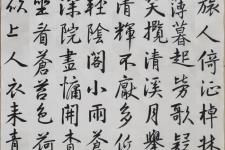 旅人倚征棹牀
薄暮起勞歌疑
笑攬清溪月舉
清輝不厭多低
輕陰閣小雨蒼
深院晝慵開杳
坐看蒼苔色荷
欲上人衣來青